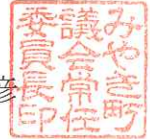 みやき町
議会常任
委員長印